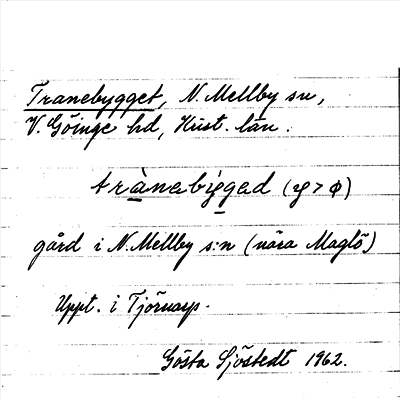 Tranebygget, N. Mellby sn,
V. Göinge hd, Krist. län.
trànabỳgged (y > ø)
gård i N. Mellby s:n (nära Maglö)
Uppt. i Tjörnarp.
Gösta Sjöstedt 1962.